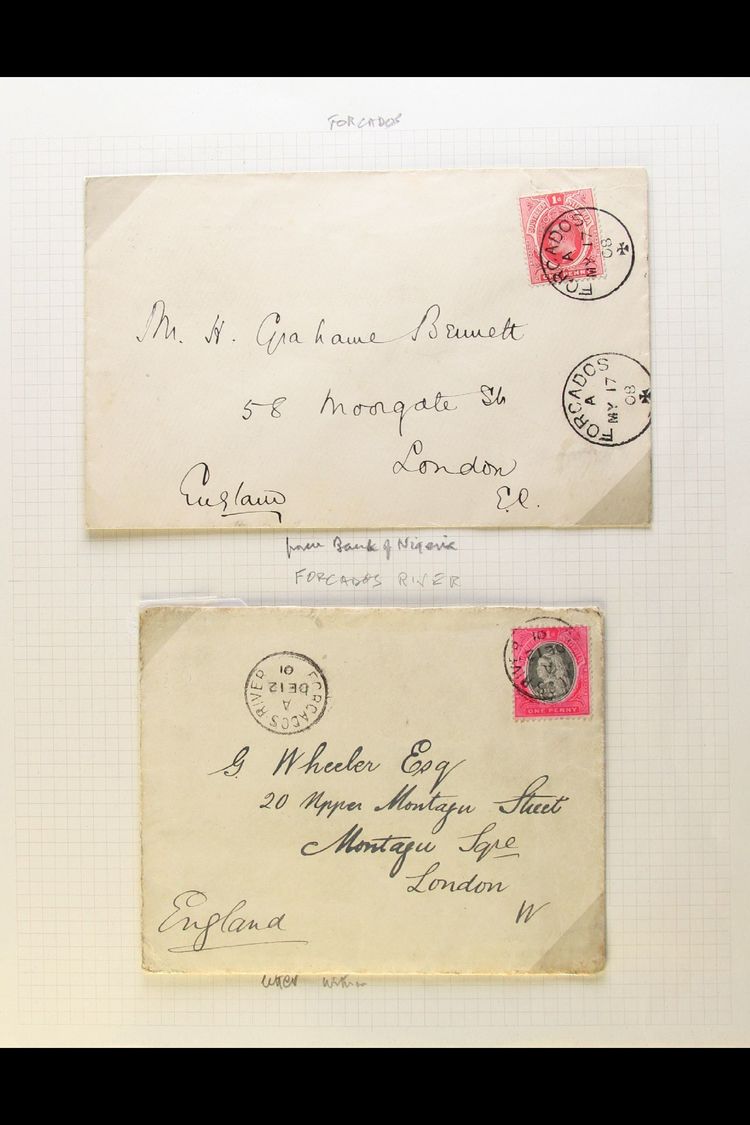 FORCADOS
1d
FORCADOS
A
MY 17
08
Mr. H. Grahame Bennett
58 Moorgate St
London
England
E.C.
FORCADOS
A
MY 17
08
from Bank of Nigeria
FORCADOS RIVER
FORCADOS RIVER
A
DE 12
01
RIVER
ONE PENNY
G Wheeler Esq
20 Upper Montagu Street
Montagu Sqre
London
W
England
letter within